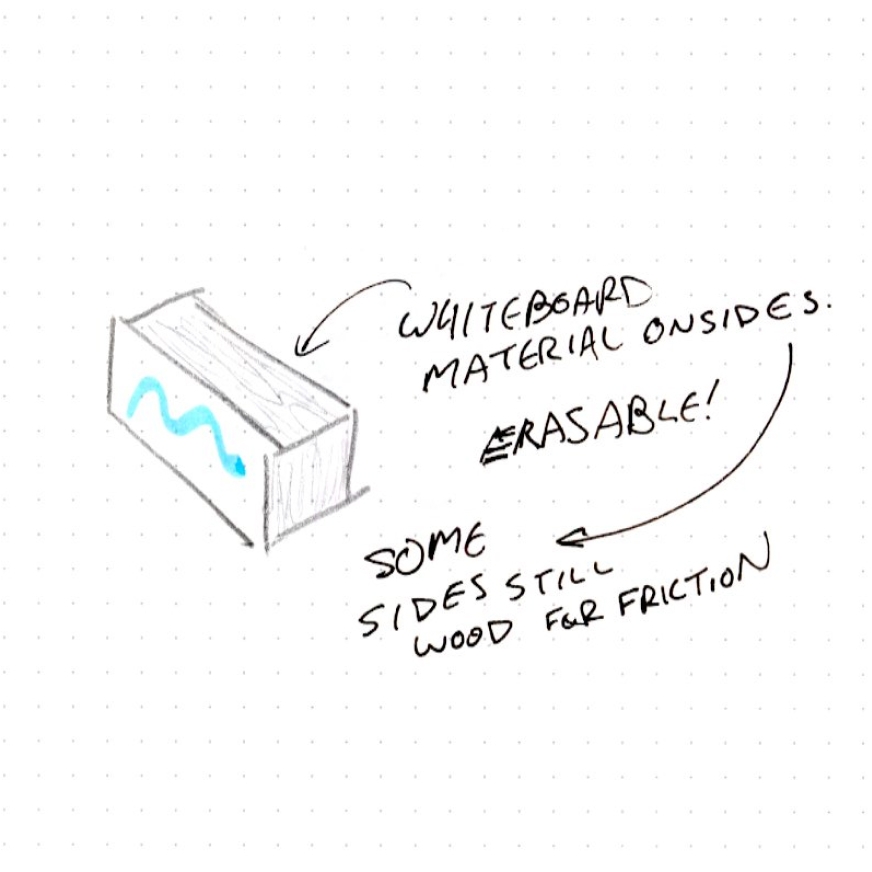 WHITEBOARD
MATERIAL ON SIDES.
ERASABLE!
SOME
SIDES STILL
WOOD FOR FRICTION